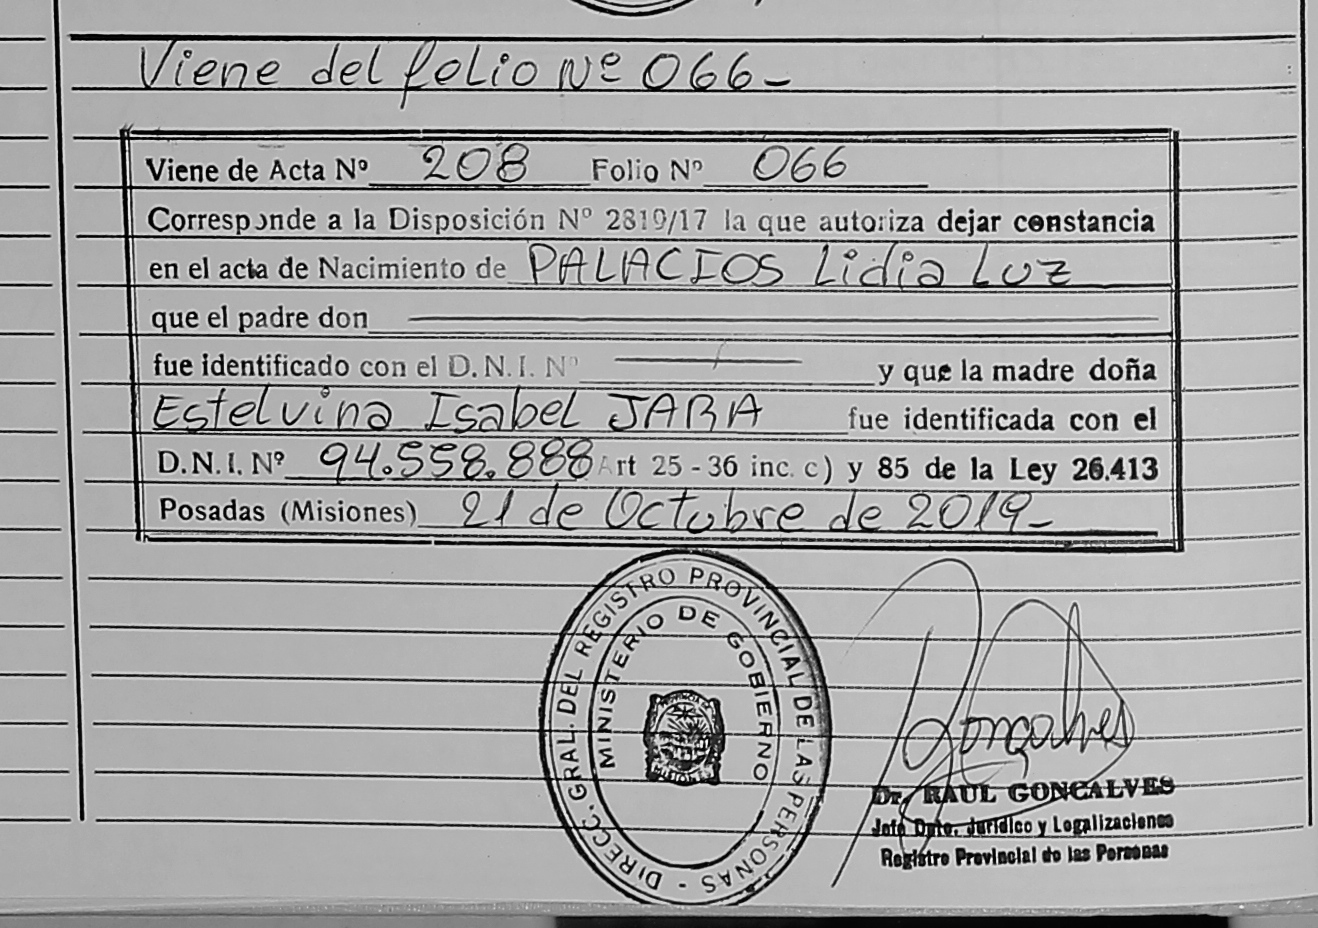 Viene del folio Nº 066-
Viene de Acta Nº 208 Folio Nº 066
Corresponde a la Disposición Nº 2819/17 la que autoriza dejar constancia
en el acta de Nacimiento de PALACIOS Lidia Luz
que el padre don
fue identificado con el D.N.I. Nº y que la madre doña
Estelvina Isabel JARA fue identificada con el
D.N.I. Nº 94.558.888 Art 25 - 36 inc. c) y 85 de la Ley 26.413
Posadas (Misiones) 21 de Octubre de 2019-
DIRECC. GRAL. DEL REGISTRO PROVINCIAL DE LAS PERSONAS -
MINISTERIO DE GOBIERNO
Gonçalves
Dr. RAUL GONCALVES
Jefe Dpto. Jurídico y Legalizaciones
Registro Provincial de las Personas